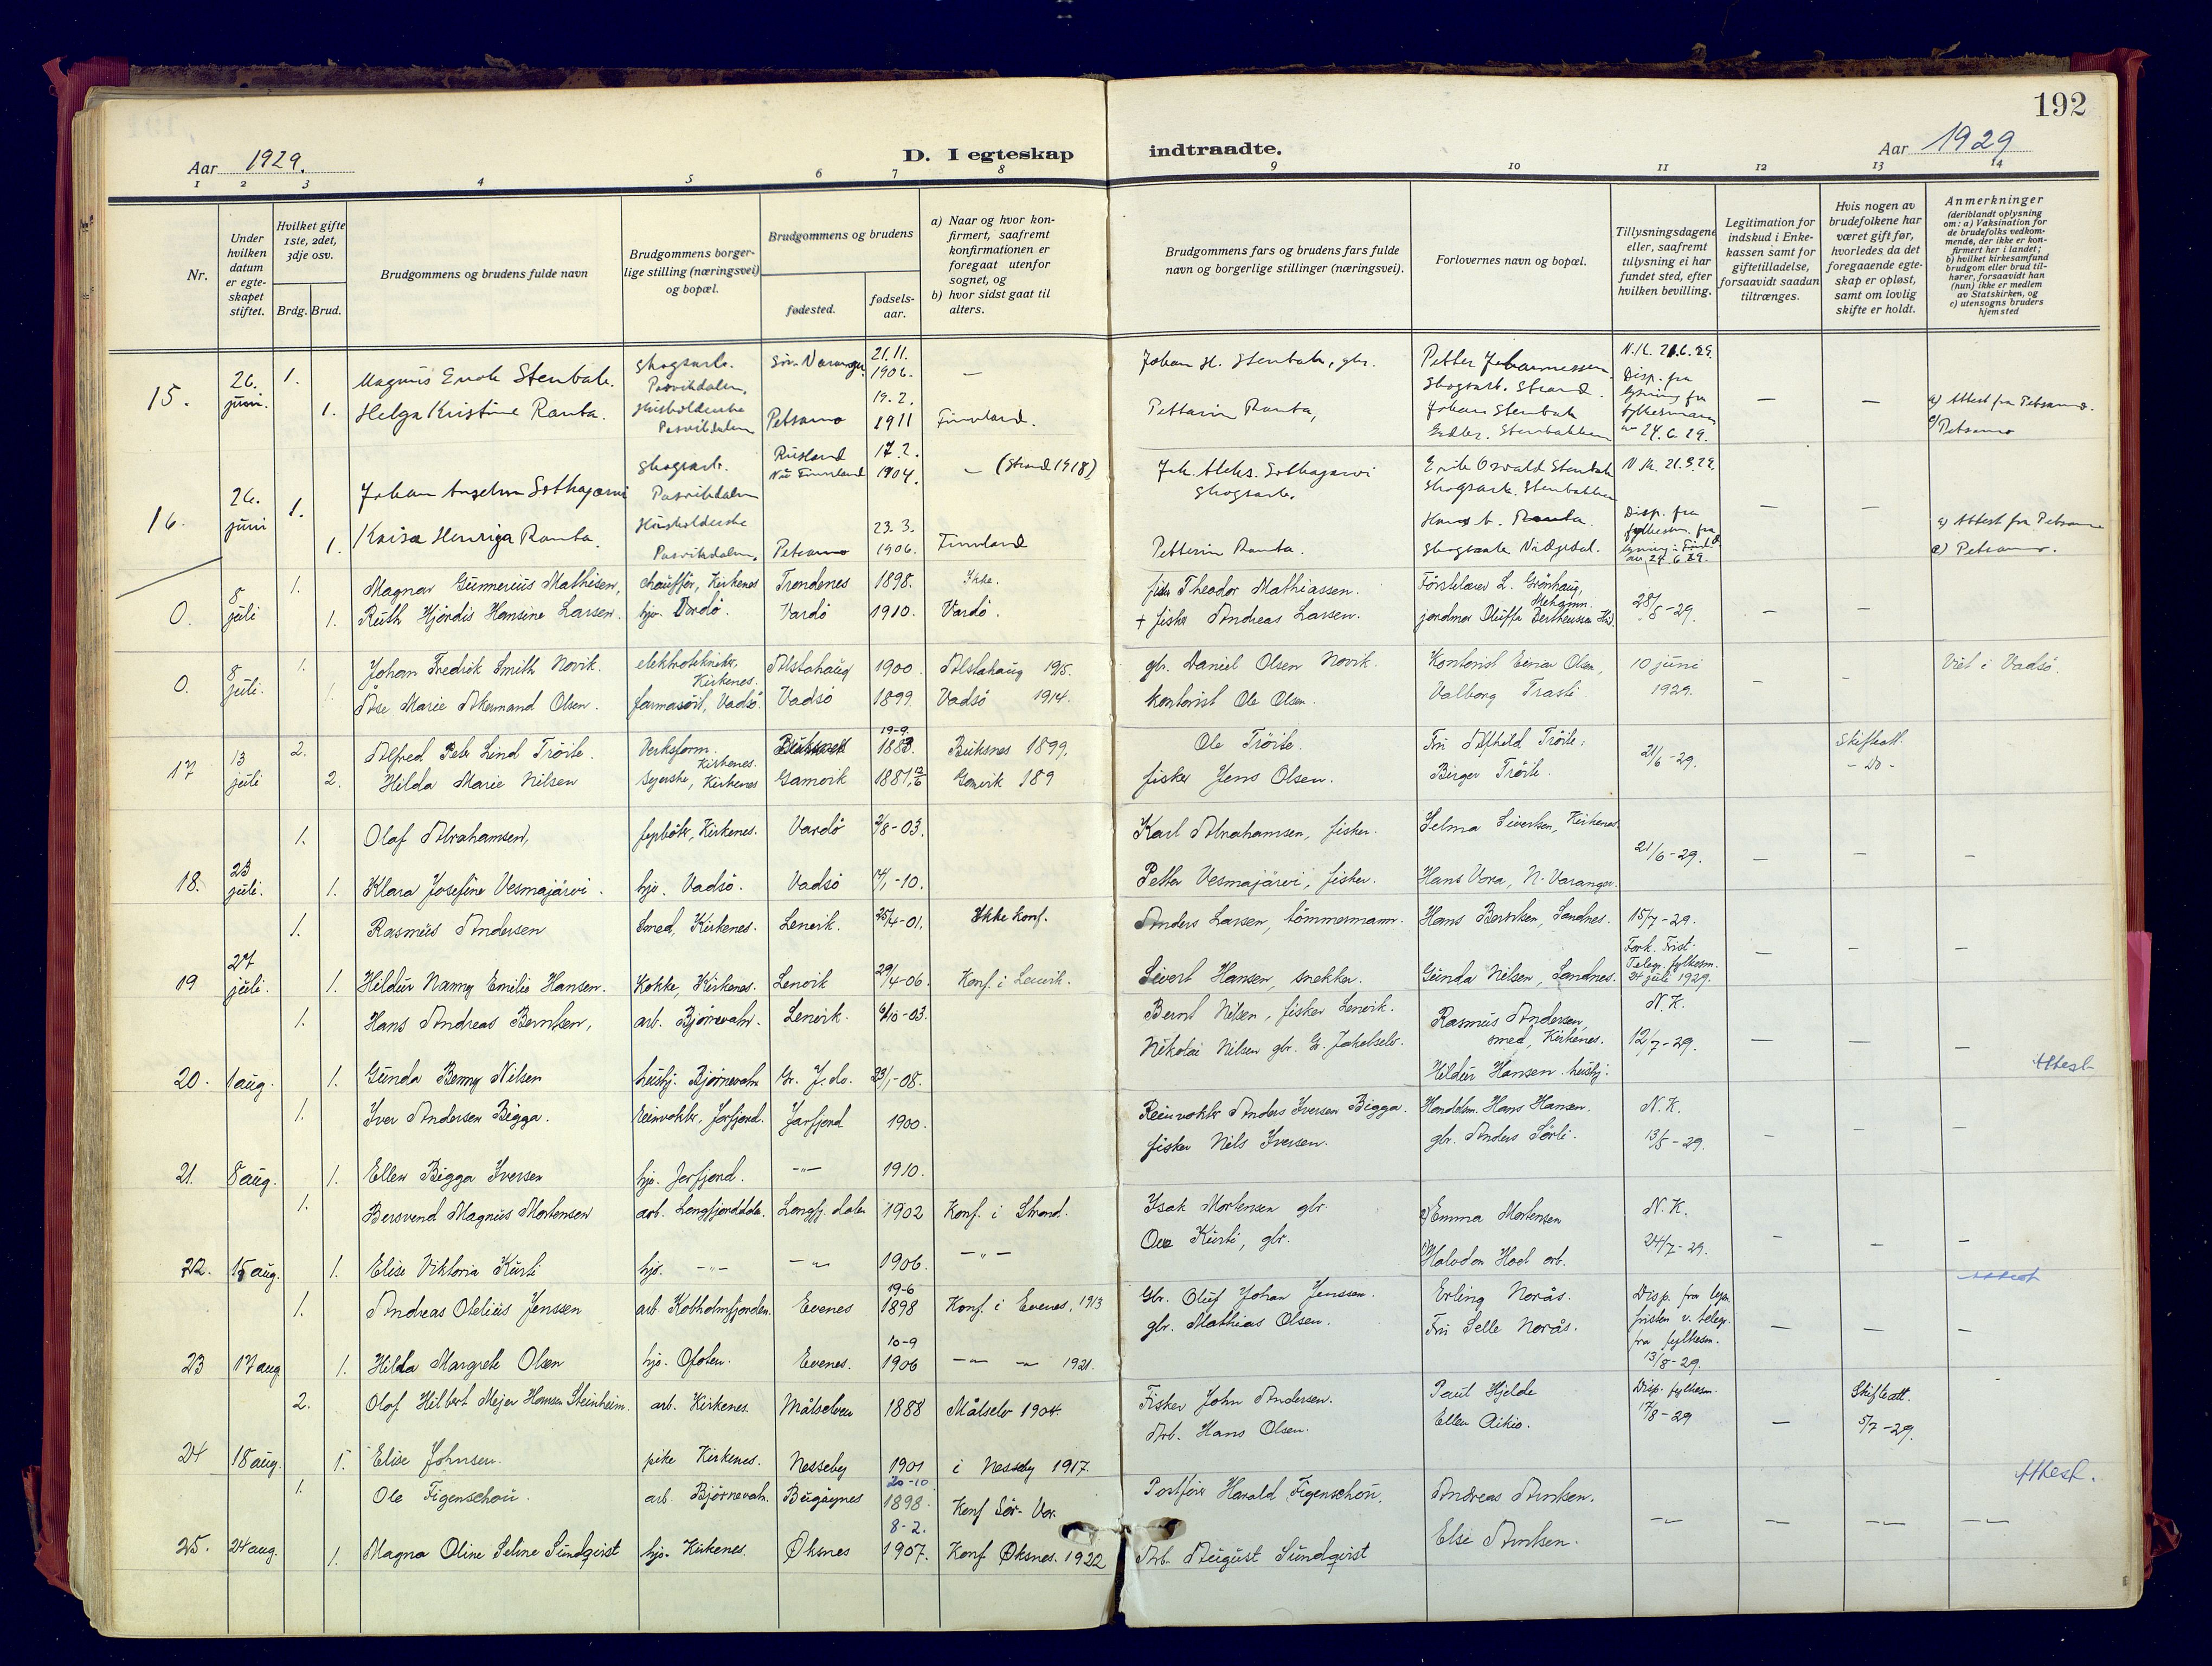 192
Aar 1929.
D. I egteskap indtraadte.
Aar 1929
1 2 3 4 5 6 7 8 9 10 11 12 13 14
Nr.
Under hvilken datum er egteskapet stiftet.
Hvilket gifte 1ste, 2det, 3dje osv.
Brdg. Brud.
Brudgommens og brudens fulde navn
Brudgommens borgerlige stilling (næringsvei) og bopæl.
Brudgommens og brudens
fødested.
fødselsaar.
a) Naar og hvor konfirmert, saafremt konfirmationen er foregaat utenfor sognet, og
b) hvor sidst gaat til alters.
Brudgommens fars og brudens fars fulde navn og borgerlige stillinger (næringsvei).
Forlovernes navn og bopæl.
Tillysningsdagene eller, saafremt tillysning ei har fundet sted, efter hvilken bevilling.
Legitimation for indskud i Enkekassen samt for giftetilladelse, forsaavidt saadan tiltrænges.
Hvis nogen av brudefolkene har været gift før, hvorledes da det foregaaende egteskap er opløst, samt om lovlig skifte er holdt.
Anmerkninger
(deriblandt oplysning om: a) Vaksination for de brudefolks vedkommende, der ikke er konfirmert her i landet;
b) hvilket kirkesamfund brudgom eller brud tilhører, forsaavidt han (hun) ikke er medlem av Statskirken, og
c) utensogns bruders hjemsted
15. 26. juni. 1. Magnus Stenbak. skogsarb. Pasvikdalen. Sør-Varanger 21.11. 1906. — Johan H. Stenbak, gbr. Petter Johannessen skogsarb. Strand. N.K. 21.6.29.
1. Helga Kristine Ranta. Husholderske Pasvikdalen Petsamo 19.2. 1911 Finnland. Petterin Ranta, Johan Stenbak Stenbakken Disp. fra lysning fra fylkesmann av 24.6.29. — — a) Attest fra Petsamo. c) Petsamo
16. 26. juni 1. Johan Anselm skogsarb. Pasvikdalen Rusland Nu Finnland 17.2. 1904. — (Strand 1918) Joh. Aleks. skogsarb. Erik Osvald Stenbak skogsarb. Stenbakken N.K. 21.3.29.
1. Kaisa Henriga Ranta. Husholderske Pasvikdalen. Petsamo 23.3. 1906. Finnland Petterin Ranta. Ranta. skogsarb. Disp. fra fylkesm. fra lysning av 24.6.29. — — a) Attest fra Petsamo c) Petsamo.
0. 8 juli 1. Magnar Gunnerius Mathisen, chauffør, Kirkenes Trondenes 1898. Ikke. fisk. Theodor Mathiassen. Førstelærer L. Grønhaug, Mehamn.
1. Ruth Hjørdis Hansine Larsen. hjv. Vardø. Vardö 1910. Vardö. + fisker Andreas Larsen. jordmor Oluffa Bertheussen 28/5-29. — —
0. 8 juli. 1. Johan Fredrik Smith Novik. elektrotekniker, Kirkenes. Alstahaug 1900 Alstahaug 1915. gbr. Daniel Olsen Novik. Kontorist Einar Olsen, 10 juni 1929. Viet i Vadsö.
1. Åse Marie Akermand Olsen. farmasöit, Vadsö. Vadsö 1899. Vadsö 1914. kontorist Ole Olsen. Valborg Trasti. — —
17 13 juli 2. Alfred Peter Lind Tröite. Verksform. Kirkenes. Buksnes 19-9. 1883. Buksnes 1899. Ole Tröite. Fru Alfhild Tröite. 21/6-29. Skifteatt.
2. Hilda Marie Nilsen syerske, Kirkenes Gamvik 1881, Gamvik 189 fisker Jens Olsen. Birger Tröite. - Do -
18. 23 juli. 1. Olaf Abrahamsen, fyrböter, Kirkenes. Vardö 2/8-03. Karl Abrahamsen, fisker. Selma Sivertsen, Kirkenes 21/6-29. — — —
1. Klara Josefine Vesmajärvi. hjv. Vadsö. Vadsö 14/1-10. Petter Vesmajärvi, fisker. Hans Vora, N-Varanger.
19 27 juli. 1. Rasmus Andersen Smed, Kirkenes. Lenvik. 25/4-01. Ikke konf. Anders Larsen, tömmermann. Hans Berntsen, Sandnes. 15/7-29.
1. Hildur Nanny Emilie Hansen. Kokke, Kirkenes. Lenvik 29/4-06. Konf. i Lenvik. Sivert Hansen, snekker. Gunda Nilsen, Sandnes. Fork. Frist. Telegr. fylkesm. 24 juli 1929. — — —
20. 1 aug. 1. Hans Andreas Berntsen, arb. Bjørnevatn. Lenvik. 6/10-03. Bernt Nilsen, fisker Lenvik. Rasmus Andersen, smed, Kirkenes. N.K. 12/7-29. — — —
1. Gunda Benny Nilsen hushj. Bjørnevatn Gr. J. elv. 23/1-08. Nikolai Nilsen gbr. Gr. Jakobselv. Hildur Hansen hushj. Attest
21. 8 aug. 1. Iver Andersen Bigga. Reinvokter, Jarfjord. Jarfjord 1900. Reinvokter Anders Iversen Bigga. Handelsm. Hans Hansen. N.K. 13/5-29. — — —
1. Ellen Bigga Iversen hjv. Jarfjord. -"- 1910. fisker Nils Iversen. gbr. Anders Sörli.
22. 15 aug. 1. Bersvend Magnus Mortensen arb. Langfjorddalen. Langfj. dalen 1902 Konf. i Strand. Isak Mortensen gbr. 2) Emma Mortensen N.K. 24/7-29. — — —
1. Elise Viktoria Kurti hjv. -"- -"- 1906. -"- Ole Kurti, gbr. 1) Halvdan Hoel arb. Attest
23 17 aug 1. Andreas Oteliüs Jenssen arb. Kobholmfjorden. Evenes 19-6 1898 Konf. i Evenes, 1913 Gbr. Oluf Johan Jenssen. Erling Norås. Disp. fra lysn. fristen v. telegr. fra fylkesm. 13/8-29. — — —
1. Hilda Margrete Olsen hjv. Ofoten. Evenes. 10-9 1906 -"- -"- 1921. gbr. Mathias Olsen. Fru Selle Norås.
24 18 aug. 2. Olaf Hilbert Mejer Hansen Steinheim. arb. Kirkenes. Målselven 1888 Målselv 1904. Fisker John Andersen. Paul Hjelde Disp. fylkesm. 17/8-29 — Skifteatt. 5/7-29.
1. Elise Johnsen. pike Kirkenes. Nesseby 1901 i Nesseby 1917. Arb. Hans Olsen. Ellen Aikio.
25. 24 aug. 1. Ole Figenschou. arb. Bjørnevatn. Bugöynes 20-10 1898. Konf Sør-Var. Postfører Harald Figenschou. Andreas Arntsen. — — — — Attest.
1. Magna Oline Seline Sundqvist hjv. Kirkenes. Øksnes 8-2. 1907. Konf Øksnes. 1922 Arb. August Sundqvist Else Arntsen.